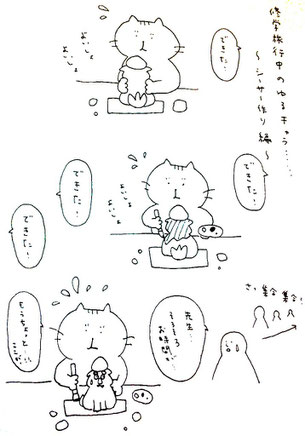 修学旅行中のゆるキャラ……
～シーサー作り編～
できた…!
よいしょ
よいしょ
できた…!
できた…!
よいしょ
よいしょ
先生…
そろそろ
お時間が…
さっ
集合
集合
もうちょっと